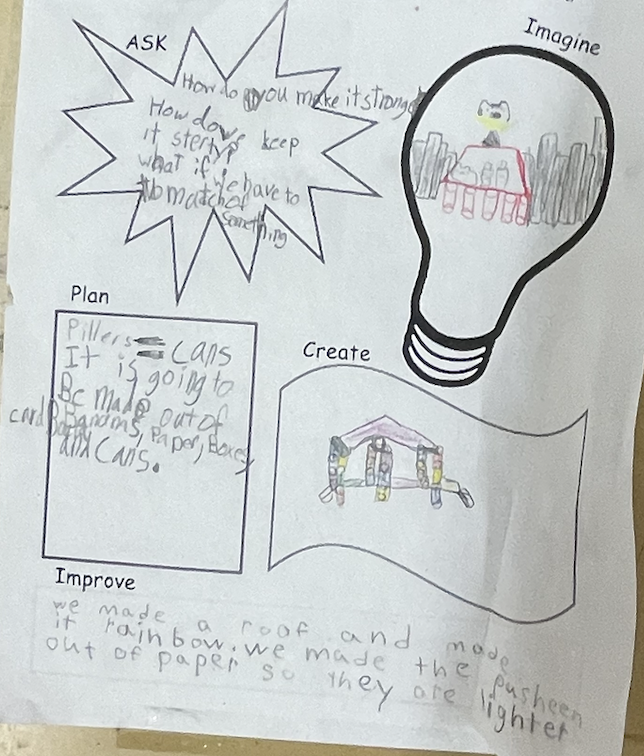 ASK
How do you make it stronger
How do we keep
it sterty
what if we have to
to match of
something
Imagine
Plan
Pillers = cans
It is going to
Be made out of
cardBoard, Paper, Boxes,
and Cans.
Create
Improve
we made a roof and made
it rainbow. we made the pusheen
out of paper so they are lighter